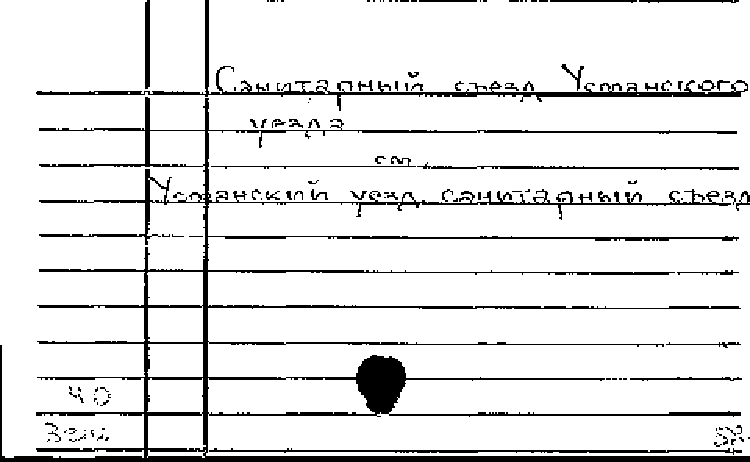 Санитарный съезд Усманского
уезда
см.
Усманский уезд. санитарный съезд
ЧО
Зем